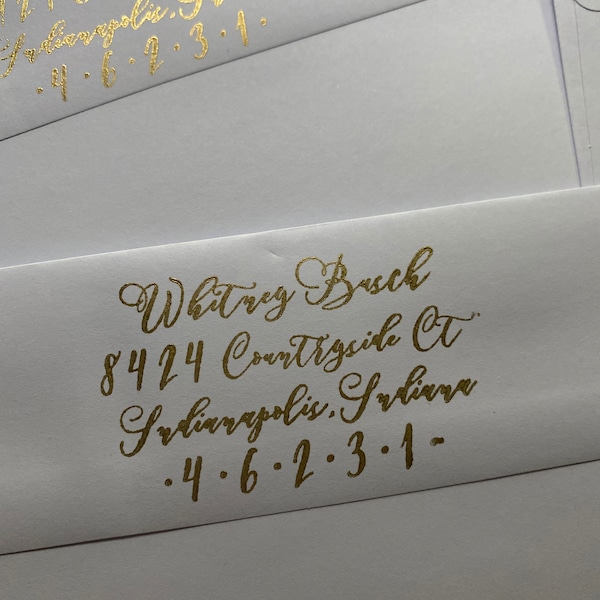 Indianapolis,
· 4 · 6 · 2 · 3 · 1 ·
Whitney Busch
8424 Countryside Ct
Indianapolis, Indiana
· 4 · 6 · 2 · 3 · 1 ·